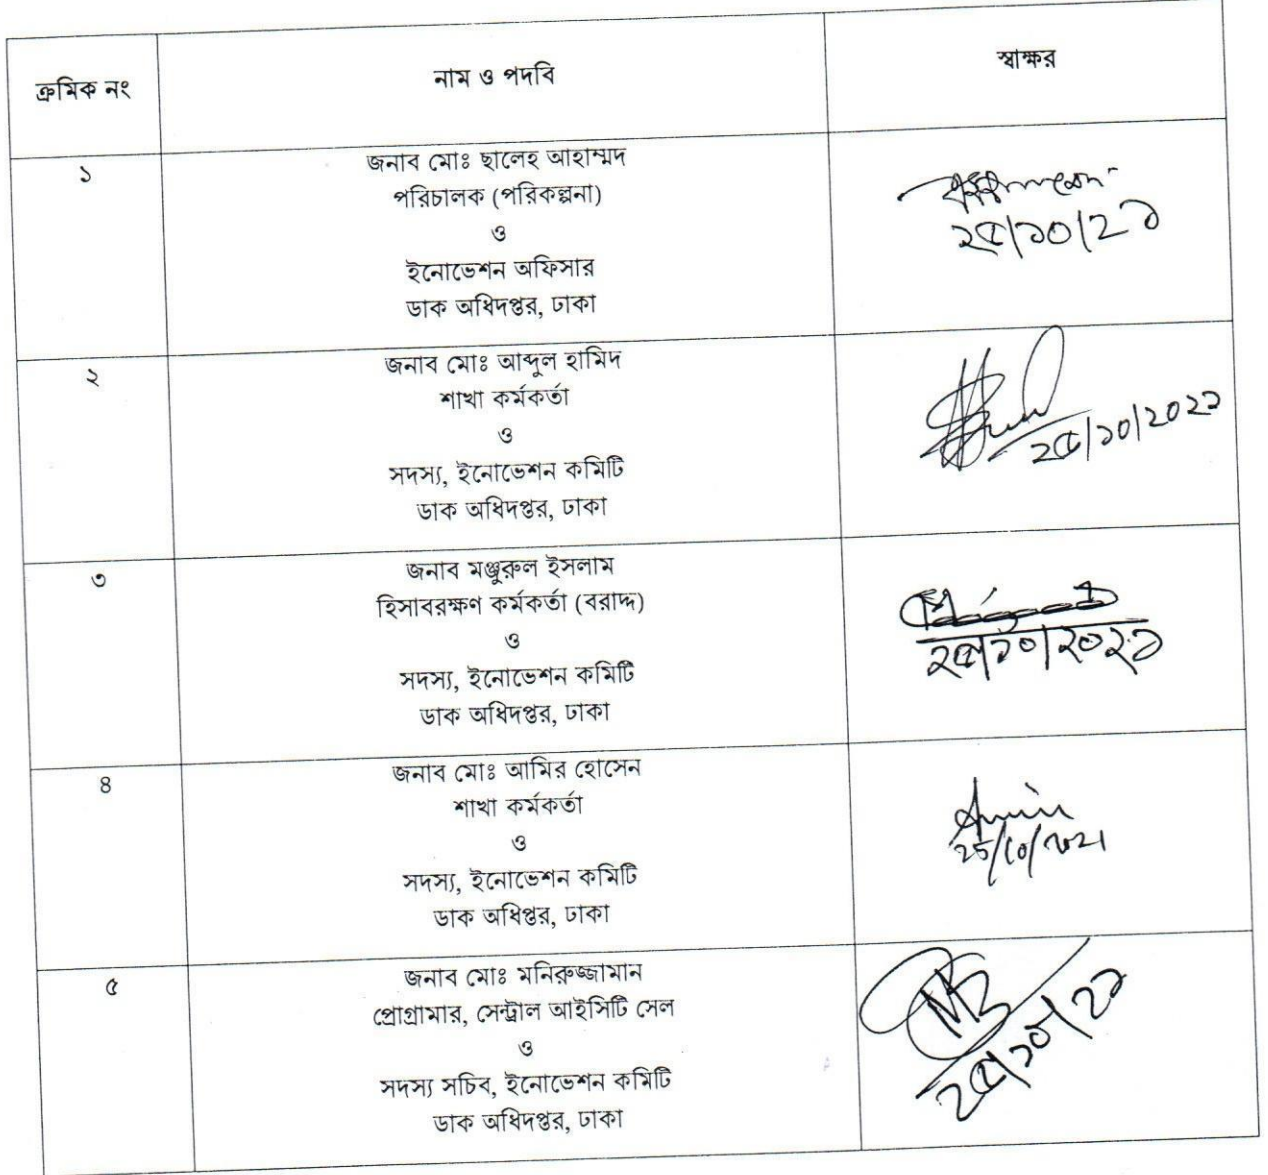 ক্রমিক নং
নাম ও পদবি
স্বাক্ষর
১
জনাব মোঃ ছালেহ আহাম্মদ
পরিচালক (পরিকল্পনা)
ও
ইনোভেশন অফিসার
ডাক অধিদপ্তর, ঢাকা
২৫/১০/২১
২
জনাব মোঃ আব্দুল হামিদ
শাখা কর্মকর্তা
ও
সদস্য, ইনোভেশন কমিটি
ডাক অধিদপ্তর, ঢাকা
২৫/১০/২০২১
৩
জনাব মঞ্জুরুল ইসলাম
হিসাবরক্ষণ কর্মকর্তা (বরাদ্দ)
ও
সদস্য, ইনোভেশন কমিটি
ডাক অধিদপ্তর, ঢাকা
২৫/১০/২০২১
৪
জনাব মোঃ আমির হোসেন
শাখা কর্মকর্তা
ও
সদস্য, ইনোভেশন কমিটি
ডাক অধিপ্তর, ঢাকা
25/10/2021
৫
জনাব মোঃ মনিরুজ্জামান
প্রোগ্রামার, সেন্ট্রাল আইসিটি সেল
ও
সদস্য সচিব, ইনোভেশন কমিটি
ডাক অধিদপ্তর, ঢাকা
২৫/১০/২১